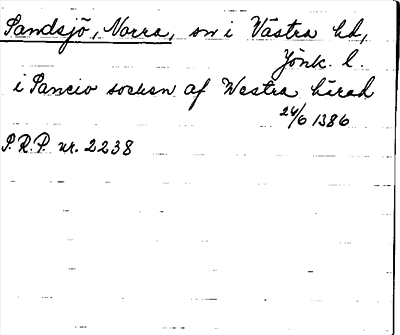 Sandsjö, Norra, sn i Västra hd,
Jönk. l.
i Sancio socken af Westra härad
24/6 1386
S.R.P. nr. 2238